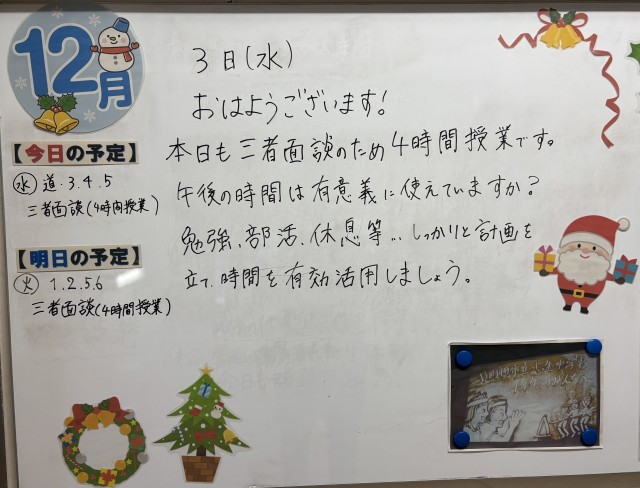 12月
3日(水)
おはようございます!
本日も三者面談のため4時間授業です。
午後の時間は有意義に使えていますか?
勉強、部活、休息等… しっかりと計画を
立て、時間を有効活用しましょう。
【今日の予定】
水 道.3.4.5
三者面談(4時間授業)
【明日の予定】
火 1.2.5.6
三者面談(4時間授業)